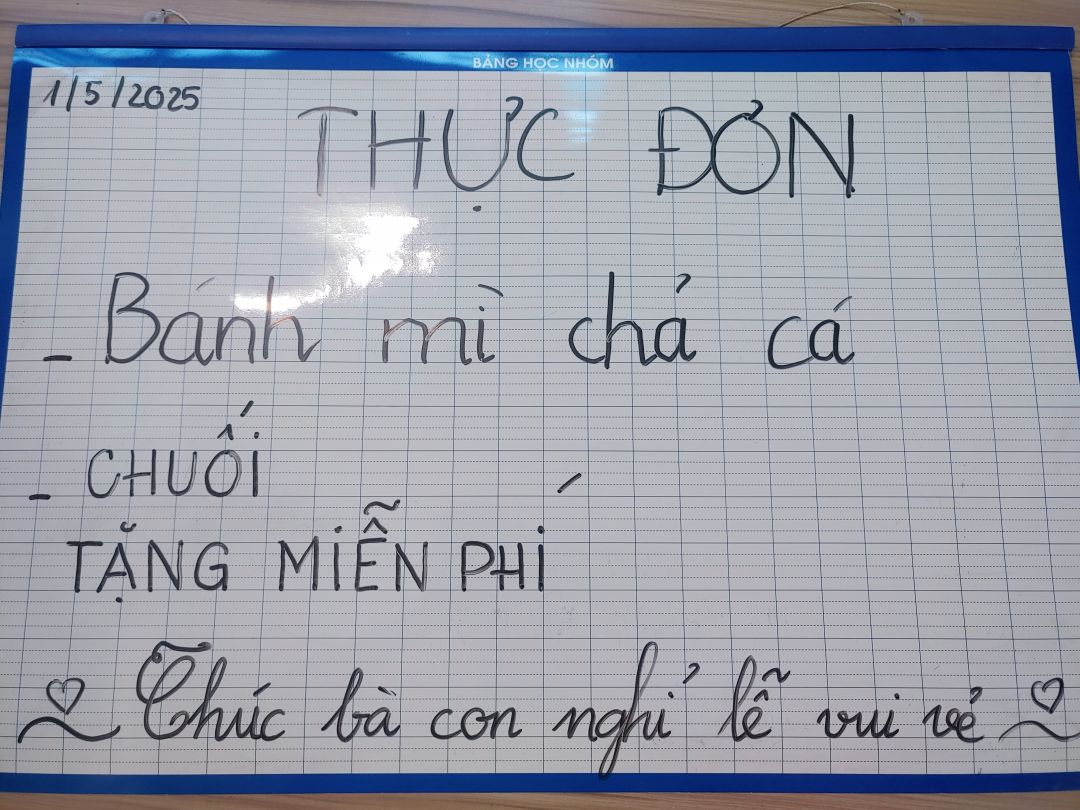 BẢNG HỌC NHÓM
1/5/2025
THỰC ĐƠN
- Bánh mì chả cá
- CHUỐI
TẶNG MIỄN PHÍ
Chúc bà con nghỉ lễ vui vẻ